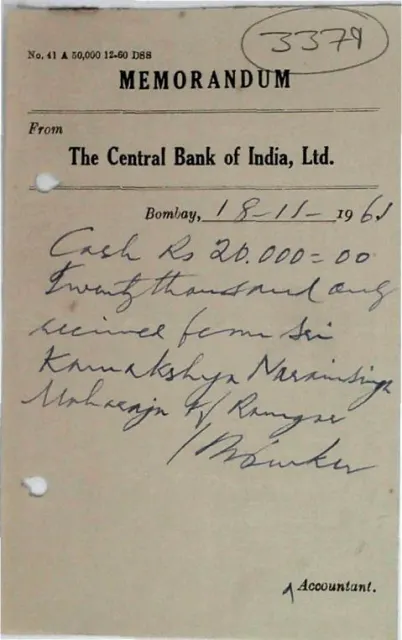 3379
No. 41 A 50,000 12-60 DSS
MEMORANDUM
From
The Central Bank of India, Ltd.
Bombay, 18-11-1961
Cash Rs 20.000=00
Twenty thousand only
received from Sri
Kamakshya Narain Singh
Maharaja of Ramgar
Accountant.